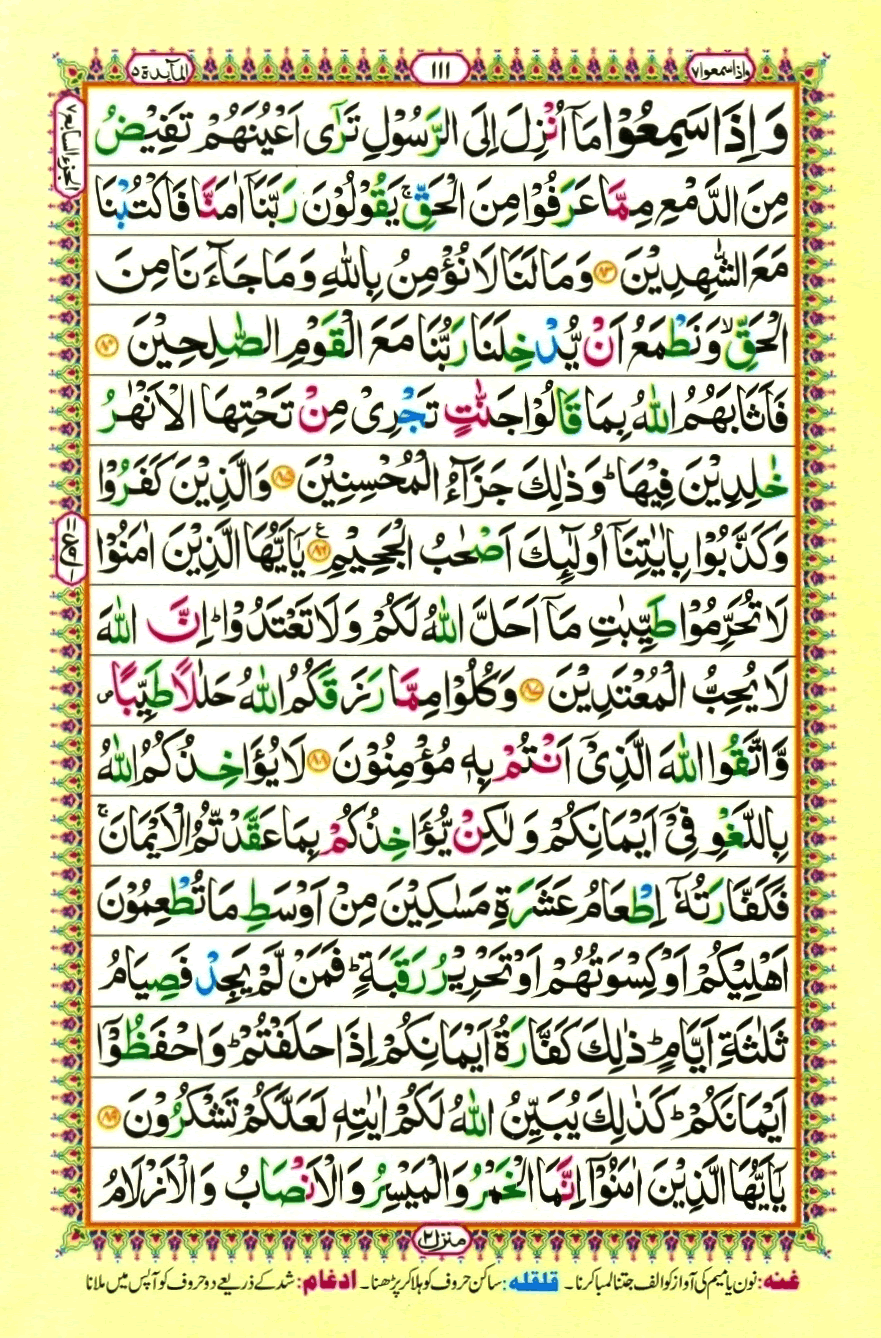 المآئدة ۵
١١١
واذا سمعوا ۷
الجزء السابع ۷
وَاِذَا سَمِعُوْا مَاۤ اُنْزِلَ اِلَى الرَّسُوْلِ تَرٰۤى اَعْيُنَهُمْ تَفِيْضُ
مِنَ الدَّمْعِ مِمَّا عَرَفُوْا مِنَ الْحَقِّ ۚ يَقُوْلُوْنَ رَبَّنَاۤ اٰمَنَّا فَاكْتُبْنَا
مَعَ الشّٰهِدِيْنَ ۝۸۳ وَمَا لَنَا لَا نُؤْمِنُ بِاللّٰهِ وَمَا جَآءَنَا مِنَ
الْحَقِّ ۙ وَنَطْمَعُ اَنْ يُّدْخِلَنَا رَبُّنَا مَعَ الْقَوْمِ الصّٰلِحِيْنَ ۝۸۴
فَاَثَابَهُمُ اللّٰهُ بِمَا قَالُوْا جَنّٰتٍ تَجْرِىْ مِنْ تَحْتِهَا الْاَنْهٰرُ
خٰلِدِيْنَ فِيْهَا ؕ وَذٰلِكَ جَزَآءُ الْمُحْسِنِيْنَ ۝۸۵ وَالَّذِيْنَ كَفَرُوْا
وَكَذَّبُوْا بِاٰيٰتِنَاۤ اُولٰٓئِكَ اَصْحٰبُ الْجَحِيْمِ ۝۸۶ يٰۤاَيُّهَا الَّذِيْنَ اٰمَنُوْا
لَا تُحَرِّمُوْا طَيِّبٰتِ مَاۤ اَحَلَّ اللّٰهُ لَكُمْ وَلَا تَعْتَدُوْا ؕ اِنَّ اللّٰهَ
لَا يُحِبُّ الْمُعْتَدِيْنَ ۝۸۷ وَكُلُوْا مِمَّا رَزَقَكُمُ اللّٰهُ حَلٰلًا طَيِّبًا ۪
وَّاتَّقُوا اللّٰهَ الَّذِىْۤ اَنْتُمْ بِهٖ مُؤْمِنُوْنَ ۝۸۸ لَا يُؤَاخِذُكُمُ اللّٰهُ
بِاللَّغْوِ فِىْۤ اَيْمَانِكُمْ وَلٰكِنْ يُّؤَاخِذُكُمْ بِمَا عَقَّدْتُّمُ الْاَيْمَانَ ۚ
فَكَفَّارَتُهٗۤ اِطْعَامُ عَشَرَةِ مَسٰكِيْنَ مِنْ اَوْسَطِ مَا تُطْعِمُوْنَ
اَهْلِيْكُمْ اَوْ كِسْوَتُهُمْ اَوْ تَحْرِيْرُ رَقَبَةٍ ؕ فَمَنْ لَّمْ يَجِدْ فَصِيَامُ
ثَلٰثَةِ اَيَّامٍ ؕ ذٰلِكَ كَفَّارَةُ اَيْمَانِكُمْ اِذَا حَلَفْتُمْ ؕ وَاحْفَظُوْۤا
اَيْمَانَكُمْ ؕ كَذٰلِكَ يُبَيِّنُ اللّٰهُ لَكُمْ اٰيٰتِهٖ لَعَلَّكُمْ تَشْكُرُوْنَ ۝۸۹
يٰۤاَيُّهَا الَّذِيْنَ اٰمَنُوْۤا اِنَّمَا الْخَمْرُ وَالْمَيْسِرُ وَالْاَنْصَابُ وَالْاَزْلَامُ
منزل ۲
غنه: نون یا میم کی آواز کو الف جتنا لمبا کرنا۔ قلقله: ساکن حروف کو ہلا کر پڑھنا۔ ادغام: شد کے ذریعے دو حروف کو آپس میں ملانا